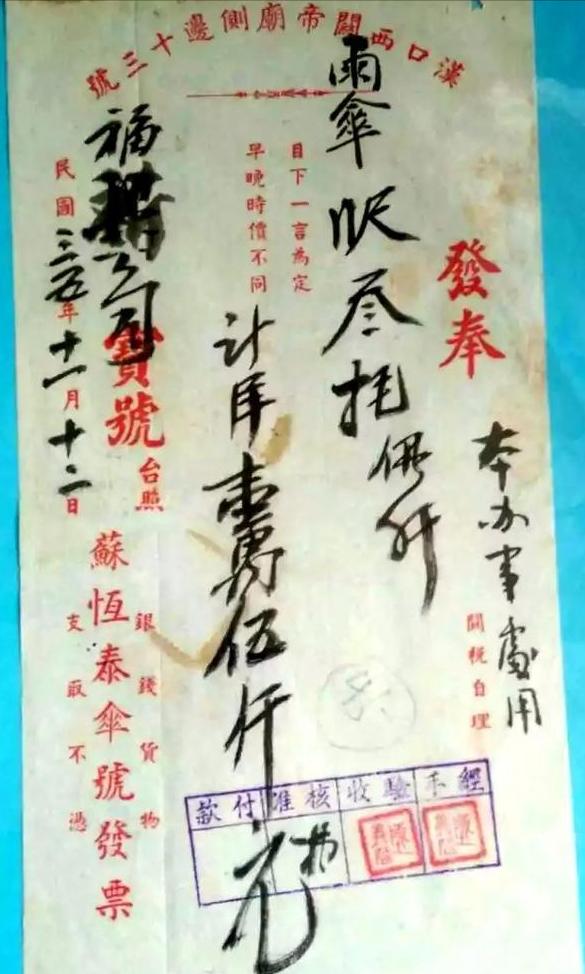 漢口西關帝廟側邊十三號
發奉
本办事處用
關稅自理
雨傘
目下一言為定
早晚時價不同
計
壹萬伍仟
元
福
公司
寶號
台照
民國三五年十一月十二日
銀錢貨物
支取不憑
蘇恆泰傘號發票
經手
驗收
核准
付款